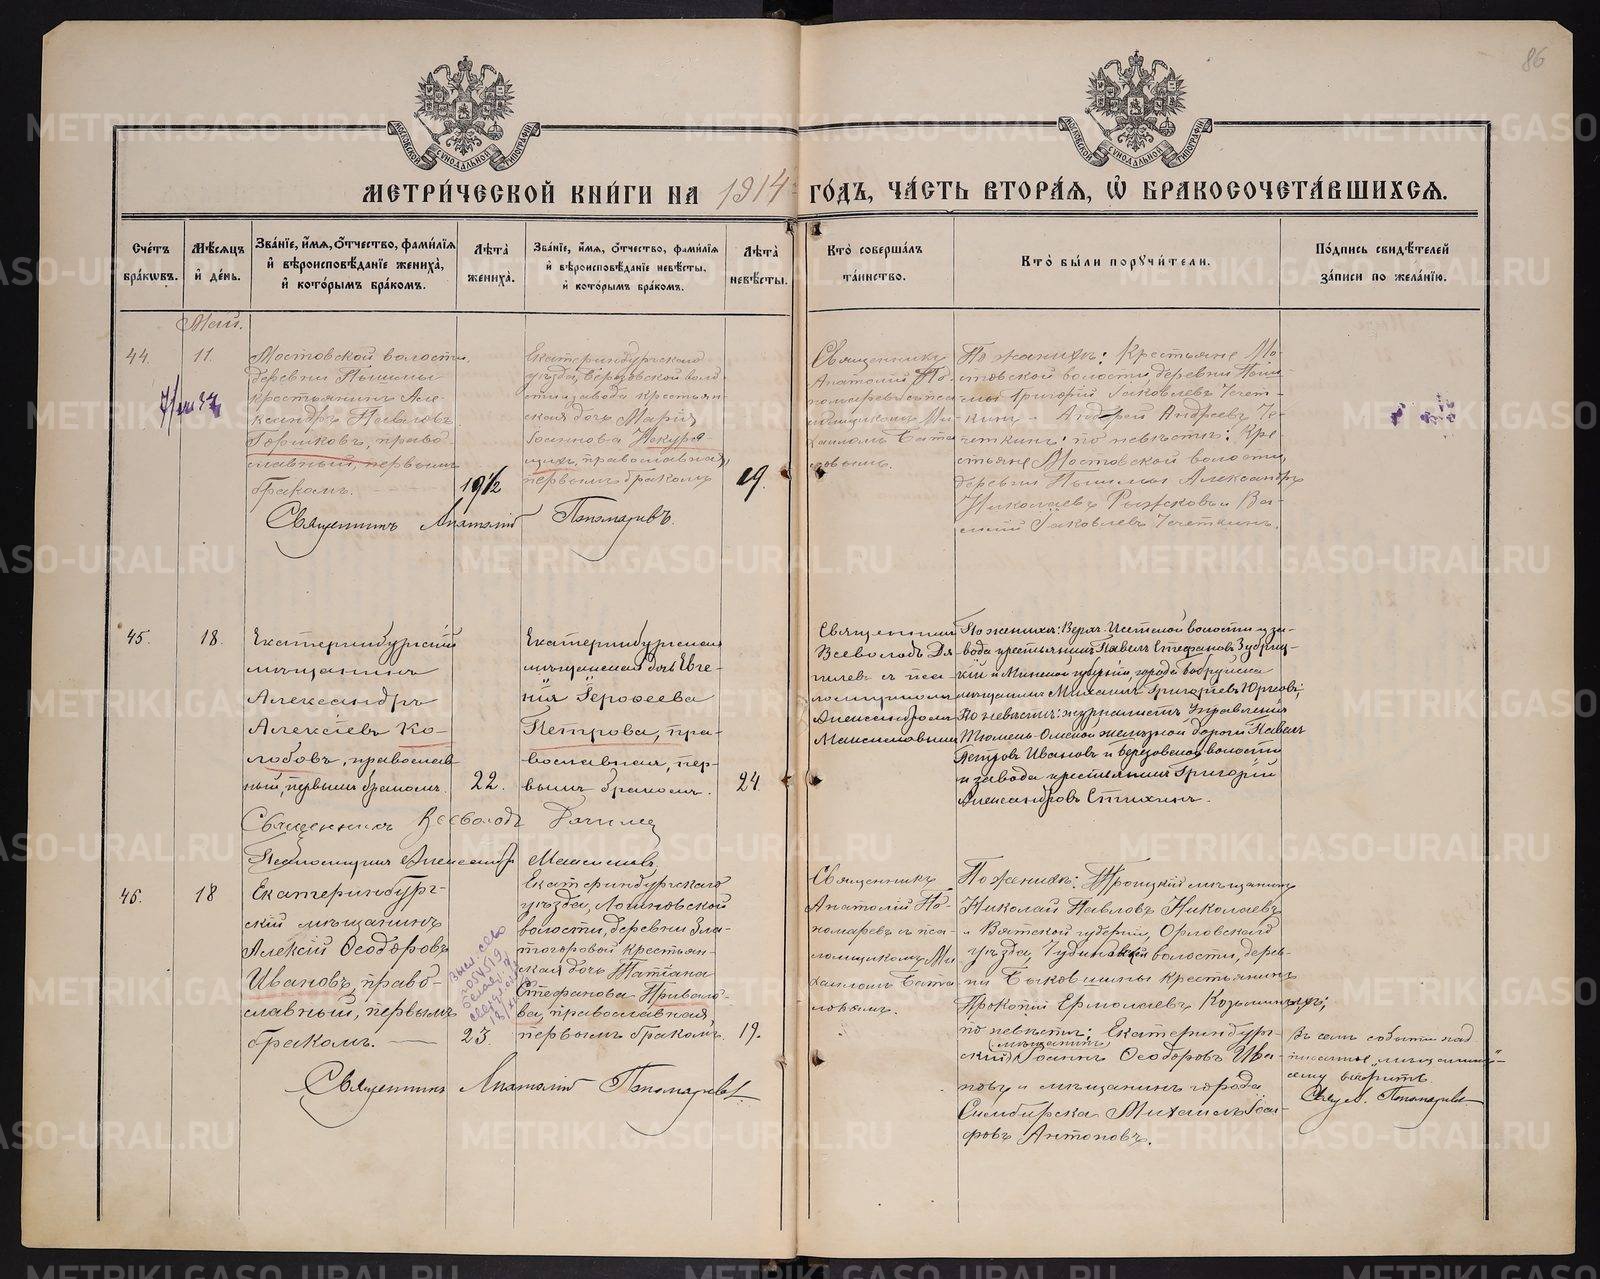 86
МОСКОВСКОЙ СУНОДАЛЬНОЙ ТИПОГРАФІИ
МОСКОВСКОЙ СУНОДАЛЬНОЙ ТИПОГРАФІИ
МЕТРИ́ЧЕСКОЙ КНИ́ГИ НА 1914 ГО́ДЪ, ЧА́СТЬ ВТОРА́Я, Ѽ БРАКОСОЧЕТА́ВШИХСЯ.
Сче́тъ бра́кѡвъ.
Мѣ́сяцъ и҆ де́нь.
Зва́нїе, и҆́мя, ѻ҆́тчество, фами́лїя и҆ вѣроисповѣ́данїе жениха̀, и҆ кото́рымъ бра́комъ.
Лѣ́та жениха̀.
Зва́нїе, и҆́мя, ѻ҆́тчество, фами́лїя и҆ вѣроисповѣ́данїе невѣ́сты, и҆ кото́рымъ бра́комъ.
Лѣ́та невѣ́сты.
Кто̀ соверша́лъ та́инство.
Кто̀ бы́ли порꙋчи́тели.
По́дпись свидѣ́телей за́писи по жела́нїю.
Май.
44.
11.
Мостовской волости
деревни Пышмы
крестьянинъ Але-
ксандръ Павловъ
Горшковъ, право-
славный, первымъ
бракомъ.
19 1/2
Екатеринбургскаго
уѣзда, Березовской воло-
сти и завода крестьян-
ская дочь Марія
Іоаннова
православная,
первымъ бракомъ
19.
Священникъ
Анатолій По-
номаревъ съ пса-
ломщикомъ Ми-
хаиломъ
По женихѣ: Крестьяне Мо-
стовской волости деревни Пыш-
мы Григорій Іаковлевъ Чечет-
кинъ и Андрей Андреевъ Че-
четкинъ; по невѣстѣ: Кре-
стьяне Мостовской волости,
деревни Пышмы Александръ
Николаевъ Рыжковъ и Ва-
силій Іаковлевъ Чечеткинъ.
Священникъ Анатолій Пономаревъ.
45.
18.
Екатеринбургскій
мѣщанинъ
Александръ
Алексіевъ Ко-
лобовъ, православ-
ный, первымъ бракомъ.
22.
Екатеринбургская
мѣщанская дочь Евге-
нія Герофеева
Петрова, пра-
вославная, пер-
вымъ бракомъ.
24.
Священникъ
Всеволодъ Дя-
гилевъ съ пса-
ломщикомъ
Александромъ
Максимовымъ
По женихѣ: Верх-Исетской волости и за-
вода крестьянинъ Павелъ Стефановъ Зубриц-
кій и Минской губерніи, города Бобруйска
мѣщанинъ Михаилъ Григоріевъ Юрковъ;
По невѣстѣ: журналистъ Управленія
Тюмень-Омской желѣзной дороги Павелъ
Петровъ Ивановъ и Березовской волости
и завода крестьянинъ Григорій
Александровъ Стихинъ.
Священникъ Всеволодъ Дягилевъ
Псаломщикъ Александръ Максимовъ
46.
18
Екатеринбург-
скій мѣщанинъ
Алексій Ѳеодоровъ
Ивановъ, право-
славный, первымъ
бракомъ.
23.
Екатеринбургскаго
уѣзда, Логиновской
волости, деревни Зла-
тогоровой крестьян-
ская дочь Татіана
Стефанова Привало-
ва, православная
первымъ бракомъ.
19.
Священникъ
Анатолій По-
номаревъ съ пса-
ломщикомъ Ми-
хаиломъ
По женихѣ: Троицкій мѣщанинъ
Николай Павловъ Николаевъ
и Вятской губерніи, Орловскаго
уѣзда, Чудиновской волости, дерев-
ни Быковщины крестьянинъ
Прокопій Ермолаевъ Козьминыхъ;
по невѣстѣ: Екатеринбург-
скій (мѣщанинъ) Іоаннъ Ѳеодоровъ Ива-
новъ и мѣщанинъ города
Симбирска Михаилъ Іоси-
фовъ Антоновъ.
Въ семъ событіи над-
писанное „мѣщанинъ“
сему вѣрить.
Свящ. А. Пономаревъ
Священникъ Анатолій Пономаревъ.
METRIKI.GASO-URAL.RU